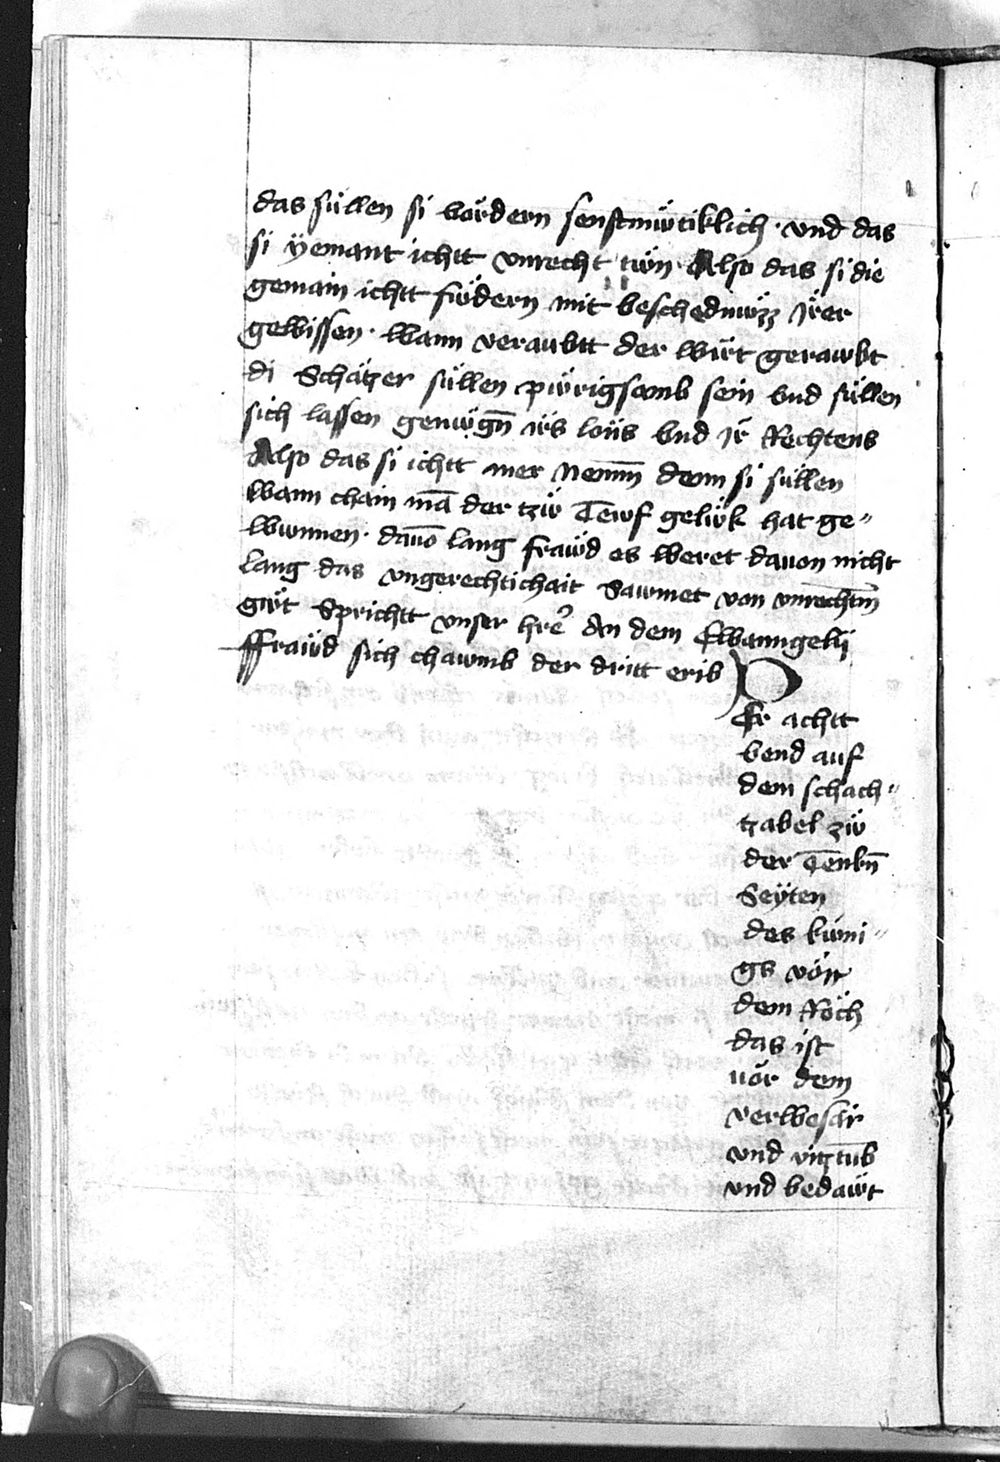 das süllen si vordern senftmüetiklich · vnd das
si yemant ichtt vnrecht tün · Also das si die
gemain ichtt füdern mit beschedinüzz Irer
gewissen · wann veraubtt der wirt gerawbt
di Schätzer süllen pürigsamb sein vnd süllen
sich lassen genügn̄ irs lons vnd Ir̄ Rechtens
Also das si ichtt mer Nemm̄ denn si süllen
wann chain mā der tzü Tewf gelük hat ge〃
wunnen · dauō lang frawd es weret dauon nicht
lang das vngerechtichait Sawmet von vnrechtm̄
güt Sprichtt vnser hre᷑ An dem Ewanngelÿ
ffraüd sich chawmb der dritt erib
D
Er achtt
vend auf
dem schach〃
tzabel zü
der Tenkn̄
Seÿten
des küni〃
gs vör
dem Röch
das ist
vör dem
verwesar
vnd vitztub
vnd bedawt